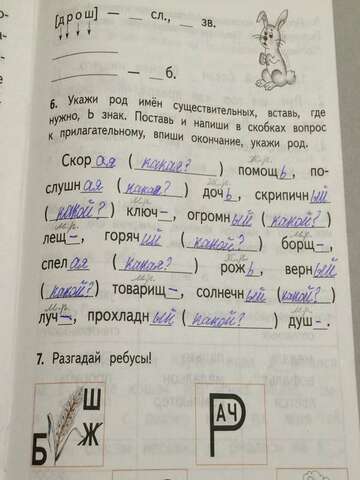 [д р о ш] — __ сл., __ зв.
— __ б.
6. Укажи род имён существительных, вставь, где
нужно, Ь знак. Поставь и напиши в скобках вопрос
к прилагательному, впиши окончание, укажи род.
ж.р.
Скорая (какая?) помощь, по-
ж.р. м.р.
слушная (какая?) дочь, скрипичный
м.р. м.р.
(какой?) ключ–, огромный (какой?)
м.р. м.р.
лещ–, горячий (какой?) борщ–,
ж.р.
спелая (какая?) рожь, верный
м.р. м.р.
(какой?) товарищ–, солнечный (какой?)
м.р. м.р.
луч–, прохладный (какой?) душ–.
7. Разгадай ребусы!
Ш
Б Ж
Р АЧ